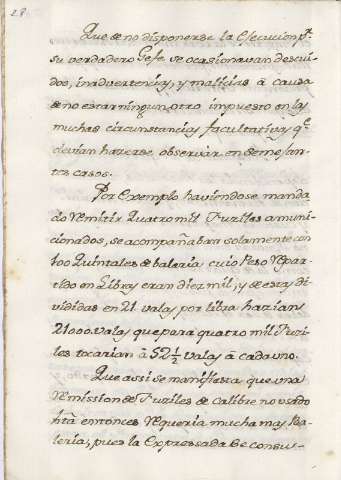 28
Que de no disponerse la Esecucion pr.
su verdadero Gefe se ocasionavan descui-
dos, inadvertencias, y malicias à causa
de no estar ningun otro impuesto en las
muchas circunstancias facultativas qe.
devian hazerse observar en semejan-
tes casos.
Por Exemplo haviendose manda-
do Remitir Quatro mil Fuziles amuni-
cionados, se acompañaban solamente con
100 Quintales de baleria cuio Peso Repar-
tido en Libras eran diez mil, y de estas di-
vididas en 21 valas por libra hazian
21000 valas que para quatro mil Fuzi-
les tocarian à 52 1/2 valas à cada uno.
Que assi se manifiesta que una
Remission de Fuziles de calibre no usado
hta entonces Requeria mucha mas Ba-
leria, pues la Expressada de Consu-